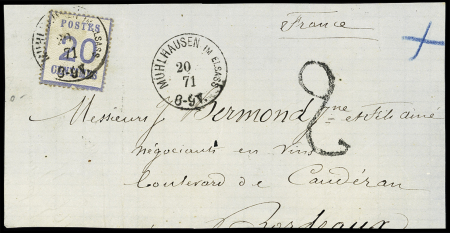 France
POSTES
20
CENTIMES
MÜHLHAUSEN IM ELSASS
20
71
8-9V.
2
Messieurs J Bermond jne et fils aîné
négociants en vin
boulevard de Caudéran
Bordeaux